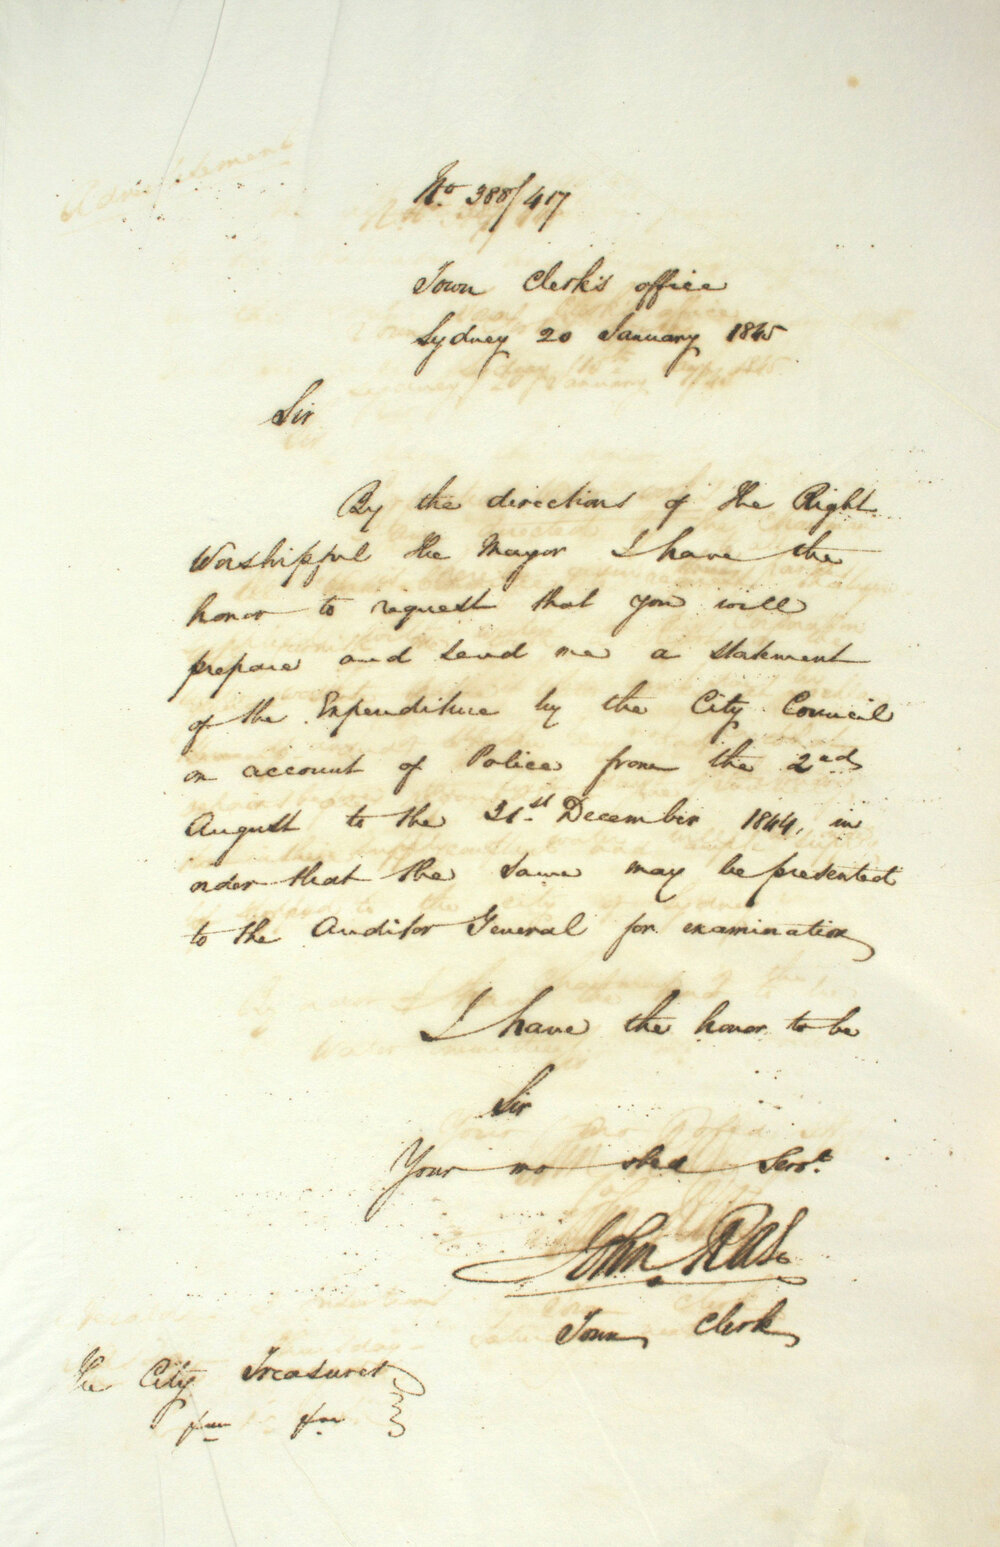 No. 388/417
Town Clerk's office
Sydney 20 January 1845
Sir
By the directions of the Right
Worshipful the Mayor I have the
honor to request that you will
prepare and send me a statement
of the Expenditure by the City Council
on account of Police from the 2nd
August to the 31st December 1844, in
order that the same may be presented
to the Auditor General for examination
I have the honor to be
Sir
Your mo obed Servt.
John Rae
Town Clerk
The City Treasurer